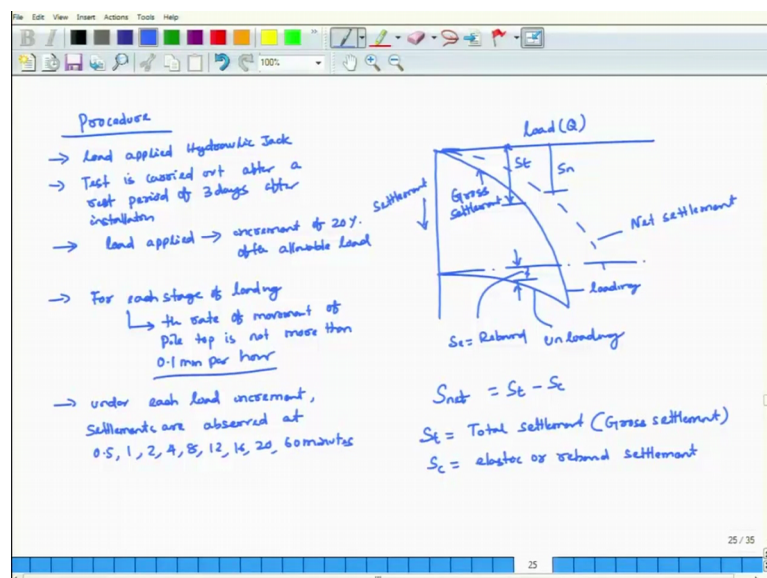 File Edit View Insert Actions Tools Help
B I
100%
Procedure
→ Load applied Hydraulic Jack
→ Test is carried out after a
rest period of 3 days after
installation
→ load applied → increment of 20%.
of the allowable load
→ For each stage of loading
the rate of movement of
Pile top is not more than
0.1 mm per hour
→ under each load increment,
Settlements are observed at
0.5, 1, 2, 4, 8, 12, 16, 20, 60 minutes
Load (Q)
Settlement
St
Sn
Gross
settlement
Net settlement
loading
Se = Rebound
unloading
Snet = St - Se
St = Total settlement (Gross settlement)
Se = elastic or rebond settlement
25 / 35
25